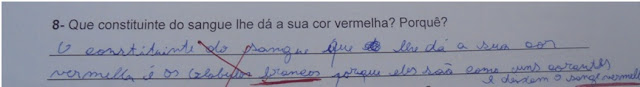 8- Que constituinte do sangue lhe dá a sua cor vermelha? Porquê?
O constituinte do sangue que lhe dá a sua cor
vermelha é os Globulos brancos porque eles são como uns corantes
e deixam o sangue vermelh